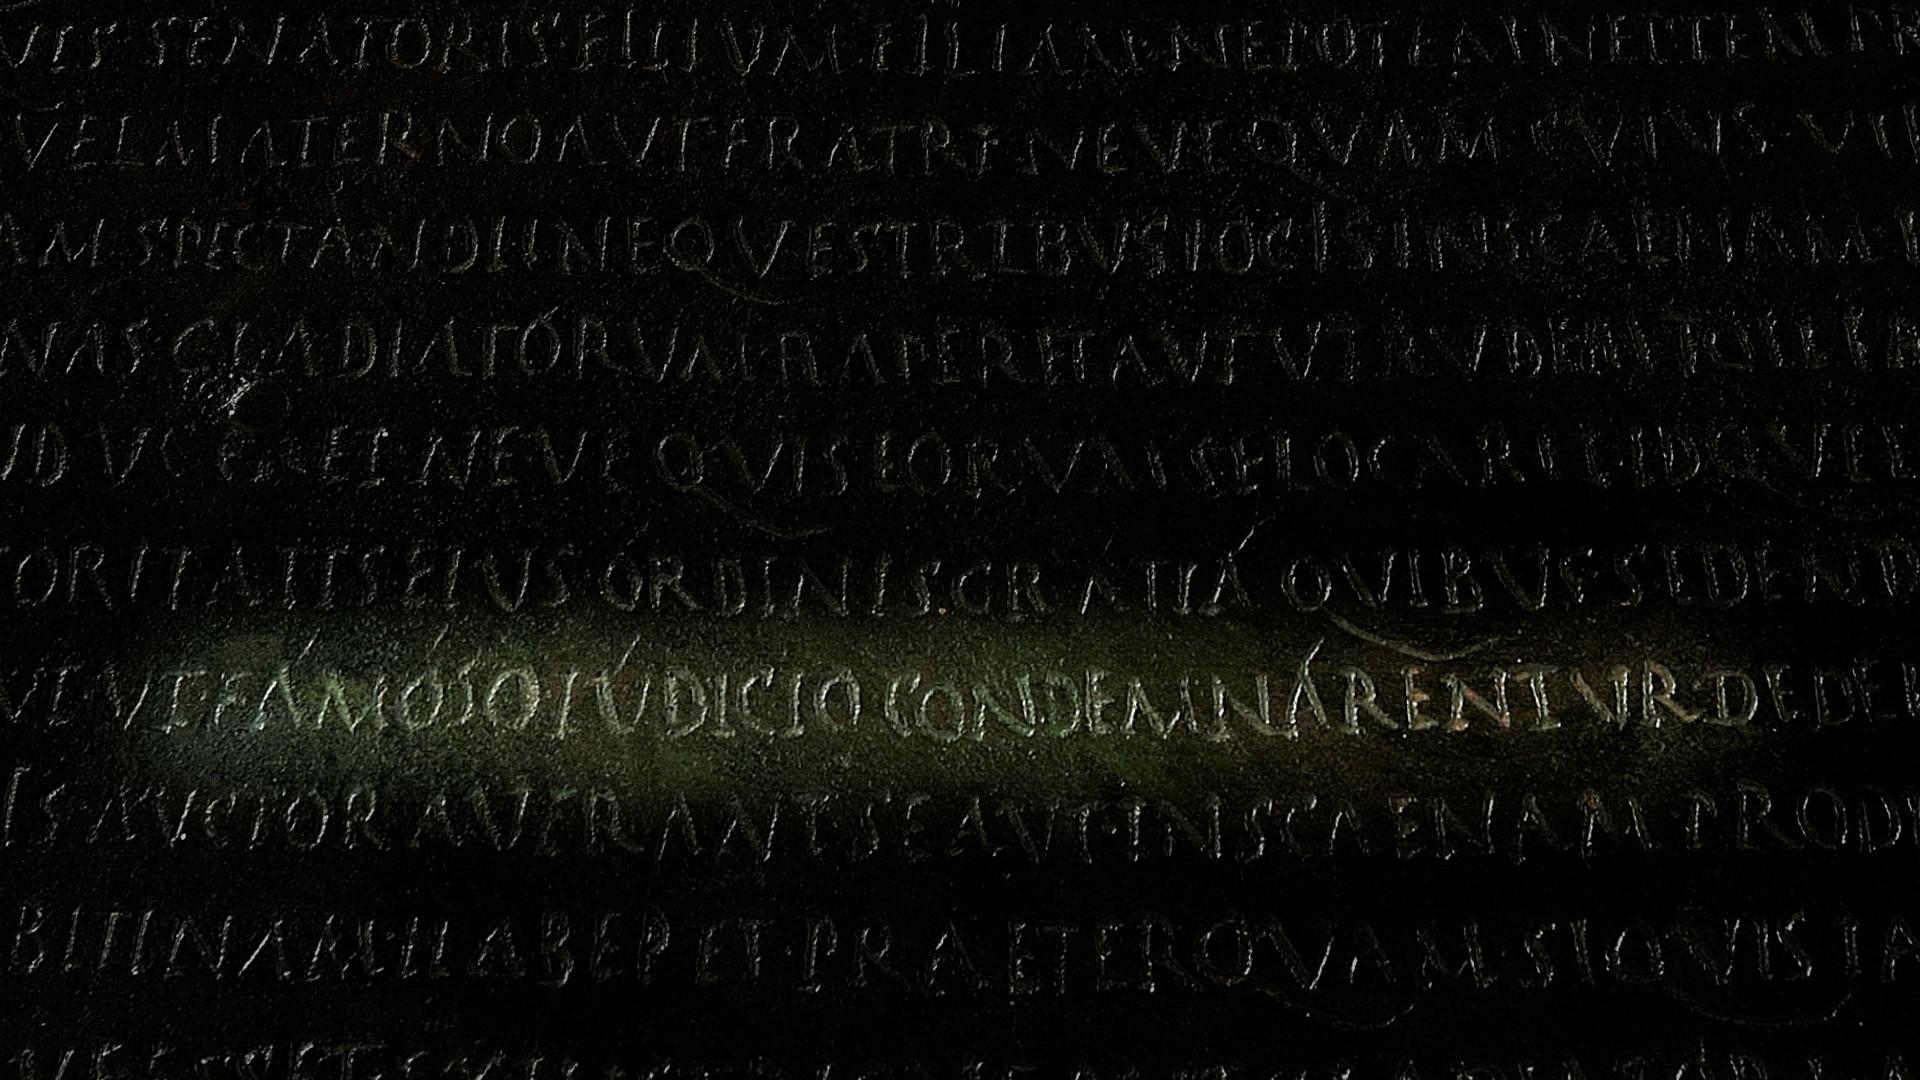 SENATORIS FILIVM FILIAM NEPOTEM NEPTEM PR
VEL MATERNO AVT FRATRI NEVE QVAM CVIVS VIR
AM SPECTANDI IN EQVESTRIBVS LOCIS IN SCAENAM
NAS GLADIATÓRVM RAPERET AVT VT RVDEM TOLLE
EI NEVE QVIS EORVM SE LOCARET IDQVE
TORITATIS EIVS ÓRDINIS GRÁTIÁ QVIBVS SEDEND
VE VT FÁMÓSO IÚDICIO CONDEMNÁRENTVR DEDE
IS AVCTORAVERANT SE AVT IN SCAENAM PRODI
BITINAM HABERET PRAETERQVAM SI QVIS IA